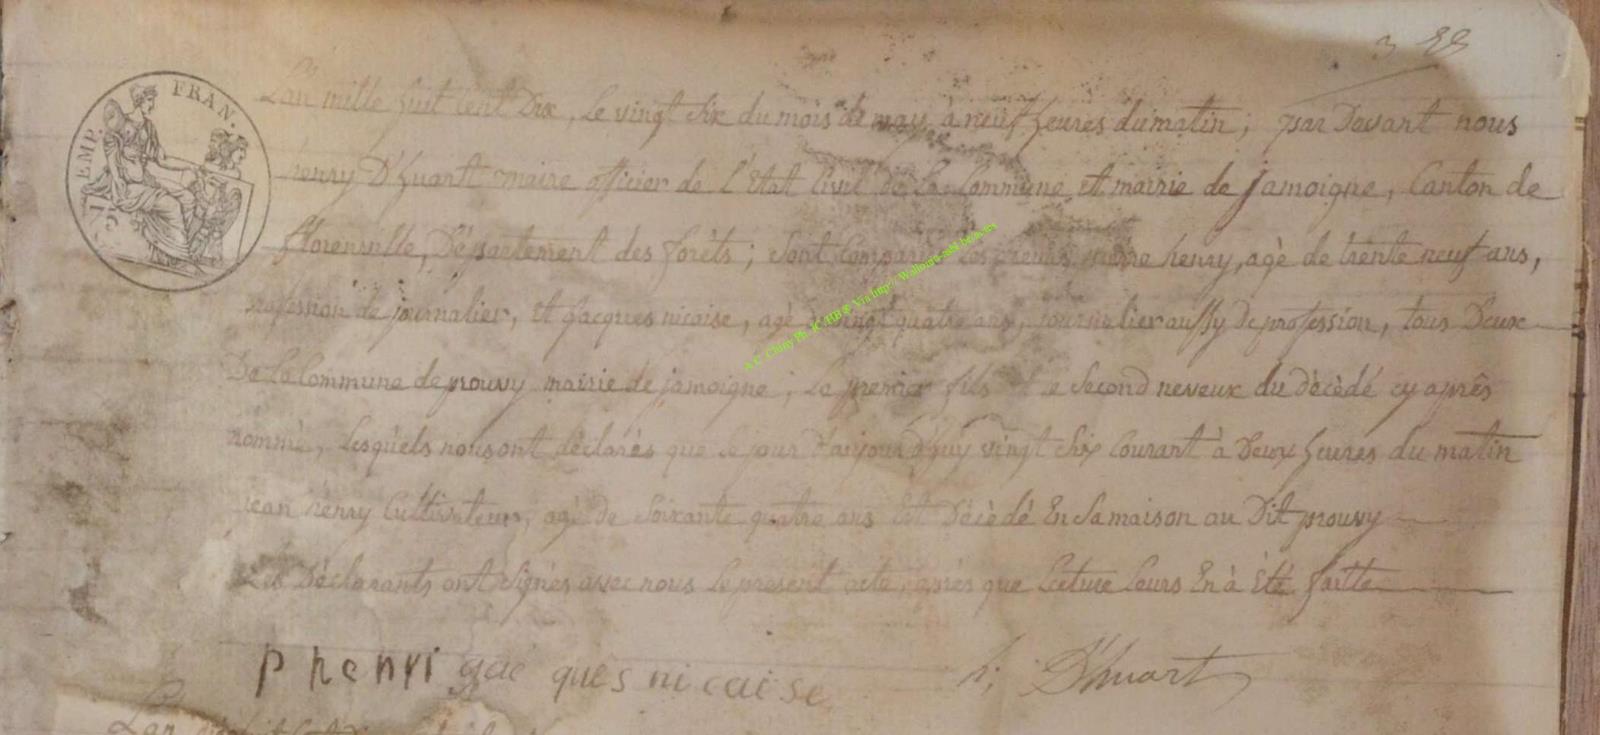 3 
L'an mille huit cent Dix, le vingt six du mois de may à neuf heures du matin; par Devant nous
henry D'huart maire officier de l'Etat Civil de la Commune et mairie de jamoigne, Canton de
florenville, Département des forêts; sont Comparus les sieurs pierre henry, agè de trente neuf ans,
profession de journalier, et Jacques nicaise, agè de vingt quatre ans, journalier aussy de profession, tous Deux
De la Commune de prouvy mairie de jamoigne; le premier fils et le second neveux du dècèdé cy après
nommé, lesquels nous ont déclarès que ce jour d'aujourd'huy vingt six Courant à Deux heures du matin
jean henry Cultivateur, agè de soixante quatre ans Est Dècèdé En sa maison au Dit prouvy
Les Dèclarants ont signès avec nous le present acte, après que lecture leurs En à Eté faitte
p henri gac ques nicaise h; D'huart
L'an
EMP. FRAN.
A.C. Chiny Ph. JC/HB @ Via http://